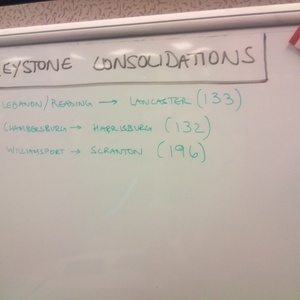 EYSTONE CONSOLIDATIONS
LEBANON/READING → LANCASTER (133)
CHAMBERSBURG → HARRISBURG (132)
WILLIAMSPORT → SCRANTON (196)